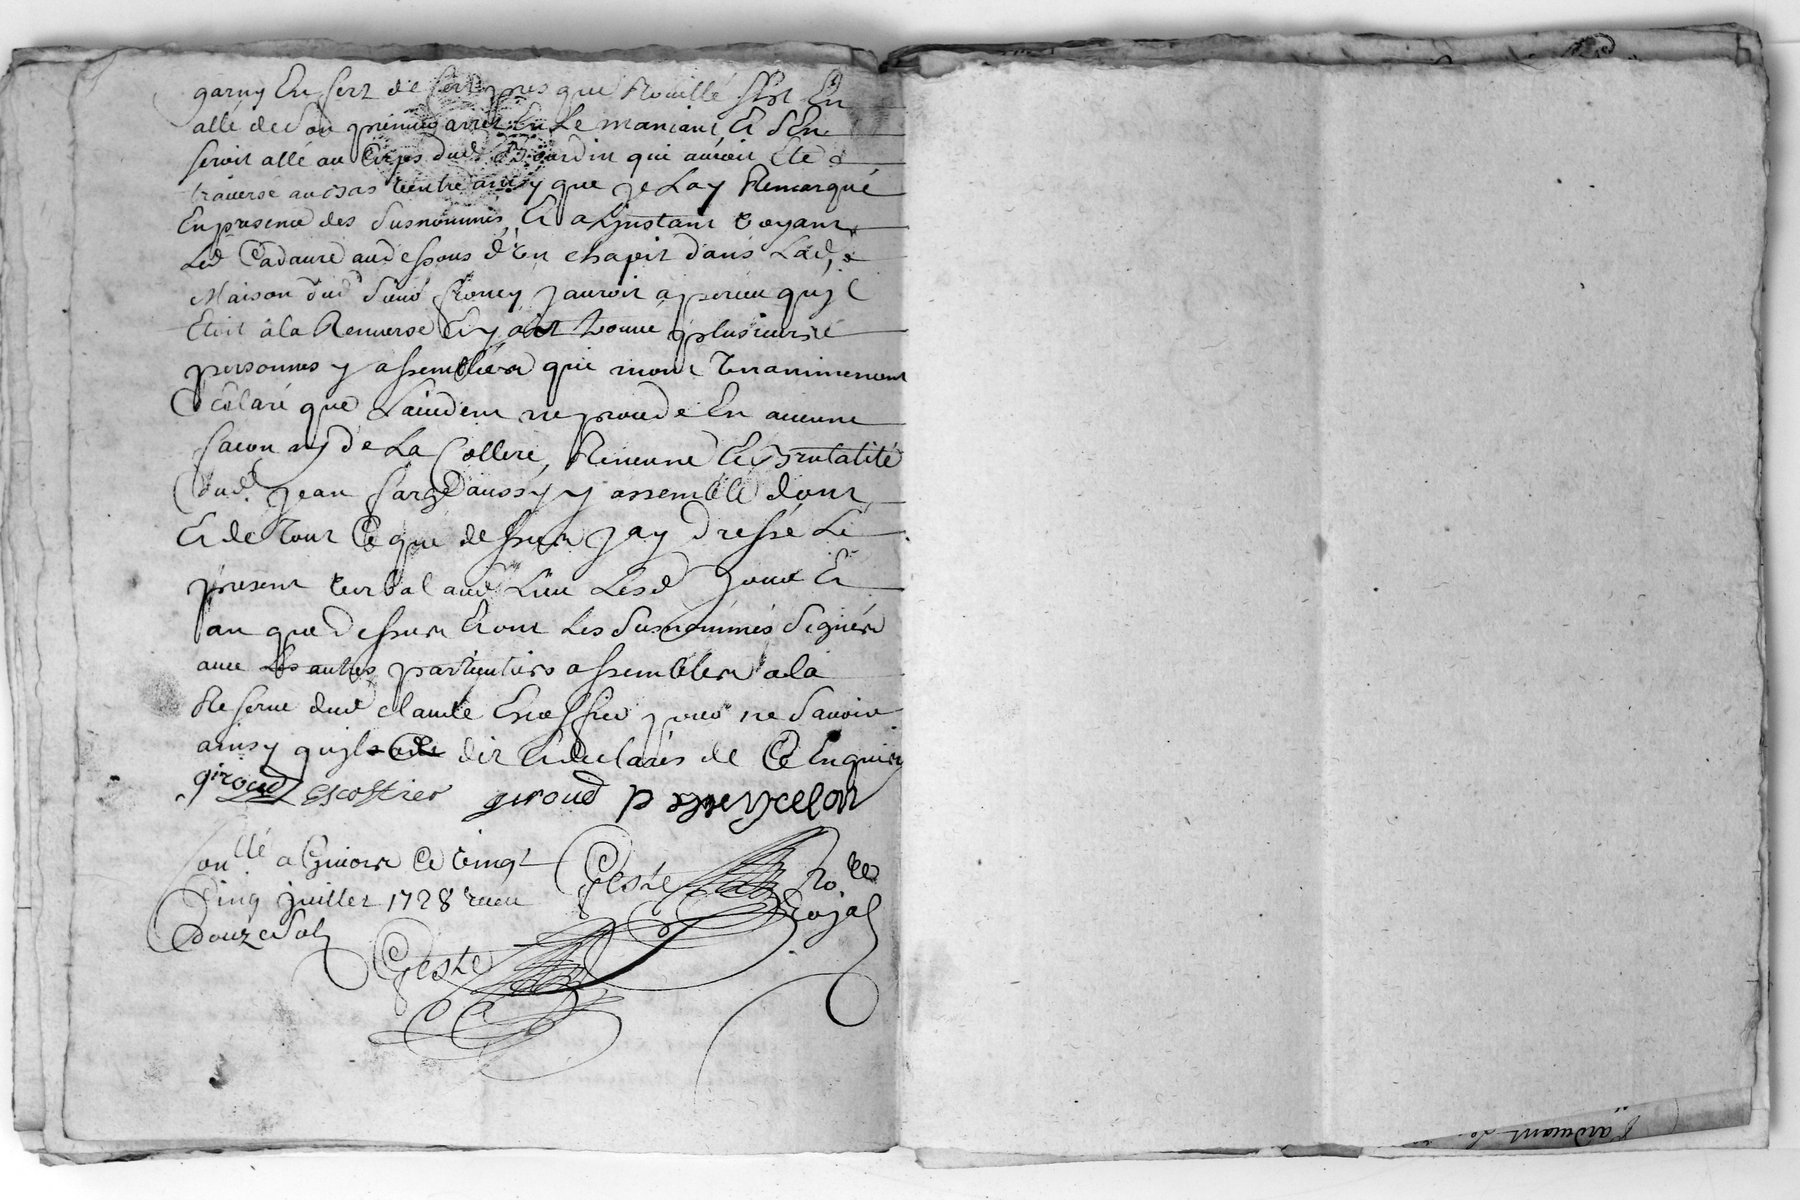 garny En fert de fert pres que Rouillé fist En
allé de Son premier arrest En Le maniant Et S'En
seroit allé au Corps dud. Bourdin qui auroit Eté
traversé au bas Ventre ainsy que je Lay Remarqué
En presence des Susnommés, Et a Linstant Voyant
Led Cadavre au dessous d'un chapit dans Lad.
Maison dud Sieur Roney jaurois aperceu quil
Etoit à la Renverse Et y ait trouvé plusieurs
personnes y assemblées qui mont Unanimement
Declaré que Laccident ne procede En aucune
façon ny de La Collere, Rencune Et Brutalité
dud. jean aussy y assemblé dont
Et de tout Ce que dessus jay Dressé Le
present Verbal aud. Lieu Lesd jour Et
an que dessus Et ont Les Susnommés Signés
avec Les autres particuliers assemblés a la
Reserve dud claude pour ne Savoir
ainsy quils dit Et declarés de Ce Enquis
giroud Escoffier giroud
Con.llé a Givors Ce Vingt
Cinq juillet 1728 receu
douze sols
Geste No.re
Royal
Geste